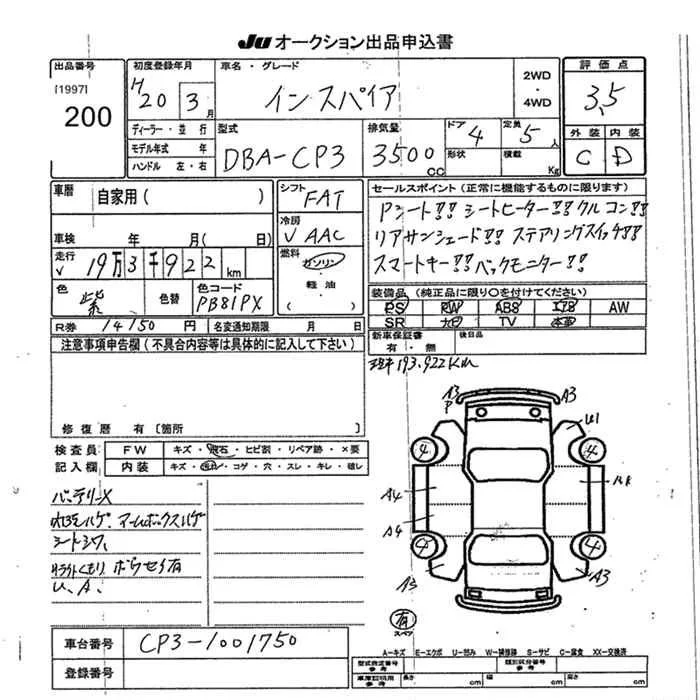 JU オークション出品申込書
出品番号
[1997]
200
初度登録年月
H20 3月
車名・グレード
インスパイア
2WD
・
4WD
評価点
3.5
外装 内装
C D
ディーラー・並行
モデル年式 年
ハンドル 左・右
型式
DBA-CP3
排気量
3500
CC
ドア 4
形状
定員 5人
積載 Kg
車歴 自家用( )
車検 年 月( 日)
走行 V 19万3千922 km
色 紫
色替
色コード
PB81PX
シフト
FAT
冷房
V AAC
燃料
ガソリン
・
軽油
( )
セールスポイント(正常に機能するものに限ります)
Pシート!! シートヒーター!! クルコン!!
リアサンシェード!! ステアリングスイッチ!!
スマートキー!! バックモニター!!
装備品(純正品に限り○を付けてください)
PS PW ABS エアB AW
SR ナビ TV 本革
R券 14150 円 名変通知期限 月 日
新車保証書
有・無
後日品
注意事項申告欄(不具合内容等は具体的に記入して下さい)
修復歴 有〔箇所 〕
193.922Km
検査員
記入欄
FW キズ・飛石・ヒビ割・リペア跡・×要
内装 キズ・汚れ・コゲ・穴・スレ・キレ・破レ
バッテリーX
内張ハゲ、アームボックスハゲ
シートシワ、
ライトくもり、ボウセイ有
U、A、
A3
P
A3
U1
4
4
A4
A4
4
4
A3
A3
有
スペア
A-キズ E-エクボ U-凹み W-補修跡 S-サビ C-腐食 XX-交換済
車台番号 CP3-1001750
登録番号
型式指定番号
参考
類別区分番号
参考
車庫証明用
参考
長さ cm 幅 cm 高さ cm